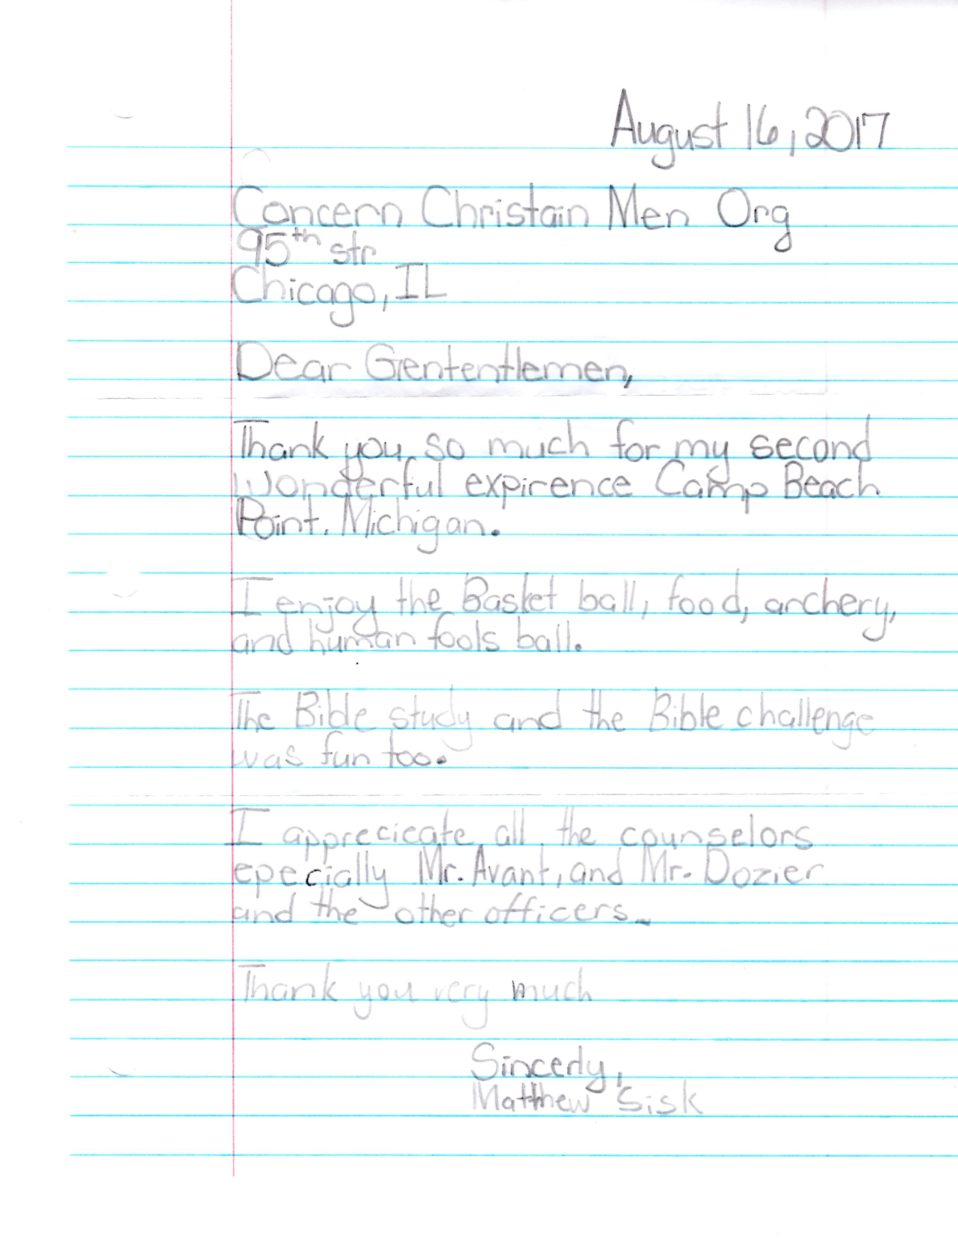 August 16, 2017
Concern Christain Men Org
95th str
Chicago, IL
Dear Gententlemen,
Thank you so much for my second
wonderful expirence Camp Beach
Point, Michigan.
I enjoy the Basket ball, food, archery,
and human fools ball.
The Bible study and the Bible challenge
was fun too.
I apprecicate all the counselors
epecially Mr. Avant, and Mr. Dozier
and the other officers.
Thank you very much
Sincerly,
Matthew Sisk